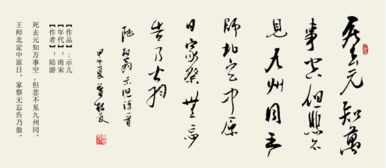 死去元知萬
事空但悲不
見九州同王
師北定中原
日家祭無忘
告乃翁
陸放翁示兒詩
甲午夏
【作品】:示儿
【年代】:南宋
【作者】:陆游
死去元知万事空,但悲不见九州同。
王师北定中原日,家祭无忘告乃翁。